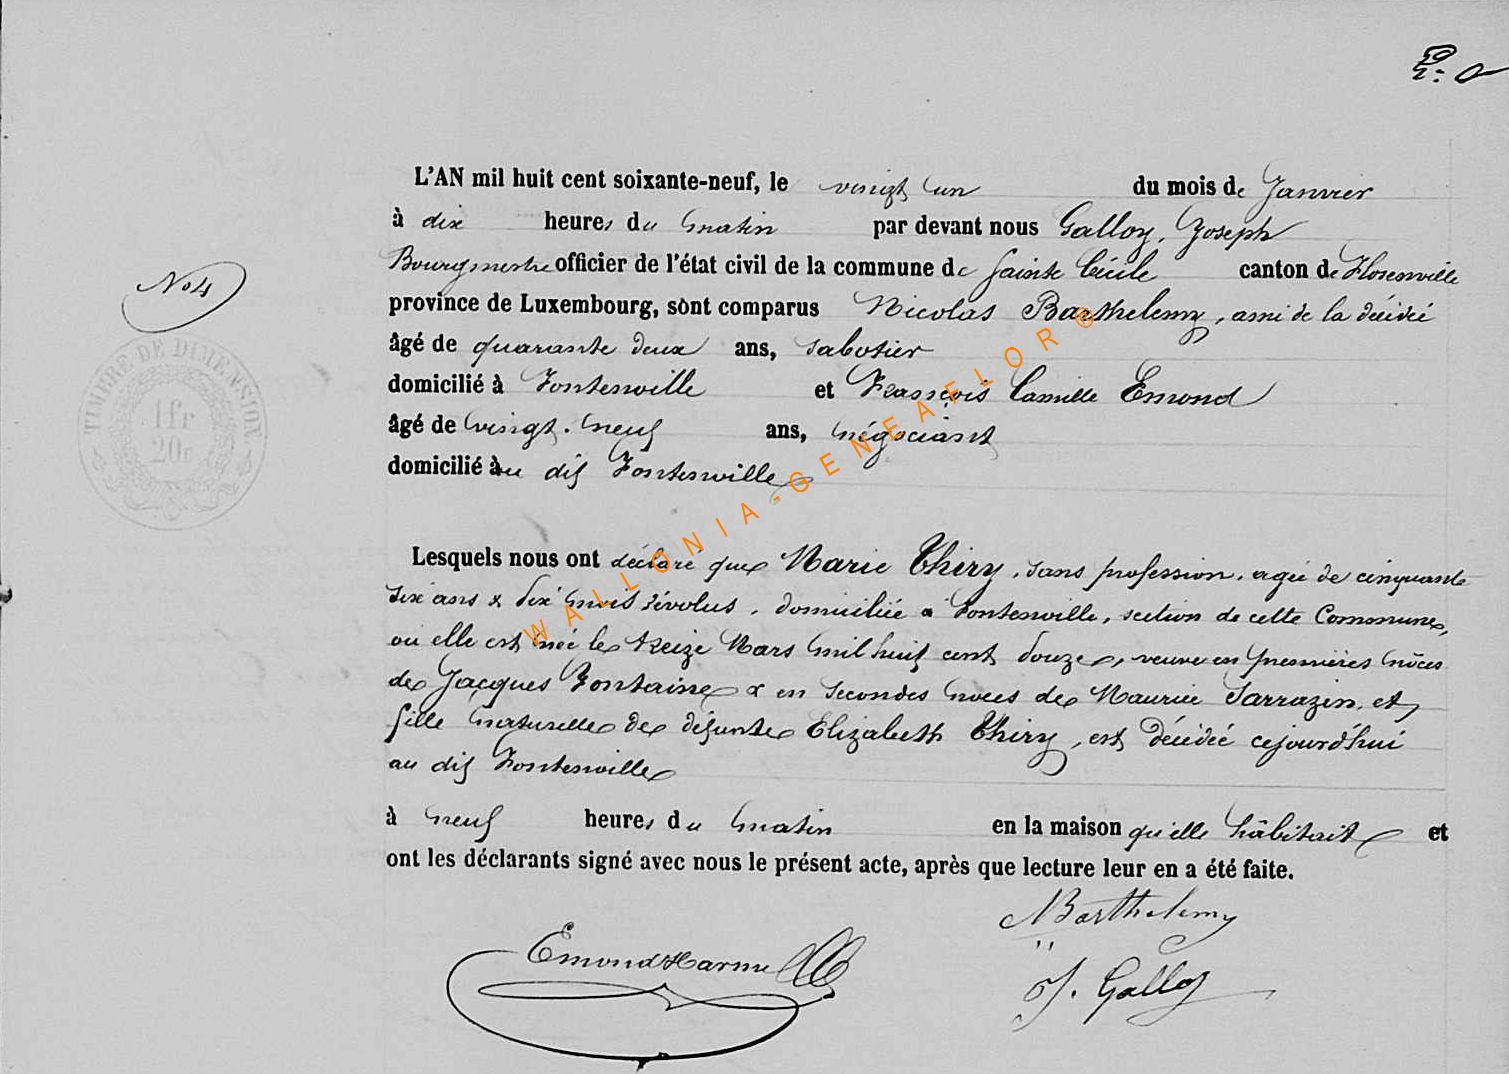 L'AN mil huit cent soixante-neuf, le vingt un du mois de Janvier
à dix heures du matin par devant nous Galloy, Joseph
Bourgmestre officier de l'état civil de la commune de Sainte Cécile canton de Florenville
province de Luxembourg, sont comparus Nicolas Barthelemy, ami de la décédée
âgé de quarante deux ans, sabotier
domicilié à Fontenoille et François Camille Emond
âgé de vingt-neuf ans, négociant
domicilié au dit Fontenoille
N° 4
TIMBRE DE DIMENSION
1fr
20c
Lesquels nous ont déclaré que Marie Thiry, sans profession, agée de cinquante
six ans & dix mois révolus, domiciliée à Fontenoille, section de cette Commune,
où elle est née le treize Mars mil huit cent douze, veuve en premières nôces
de Jacques Fontaine & en secondes noces de Maurice Sarrazin, et
fille naturelle de défunte Elizabeth Thiry, est décédée cejourd'hui
au dit Fontenoille
à neuf heures du matin en la maison qu'elle habitait et
ont les déclarants signé avec nous le présent acte, après que lecture leur en a été faite.
NBarthelemy
Emond
J. Galloy
WALLONIA-GENEAFLOR ©